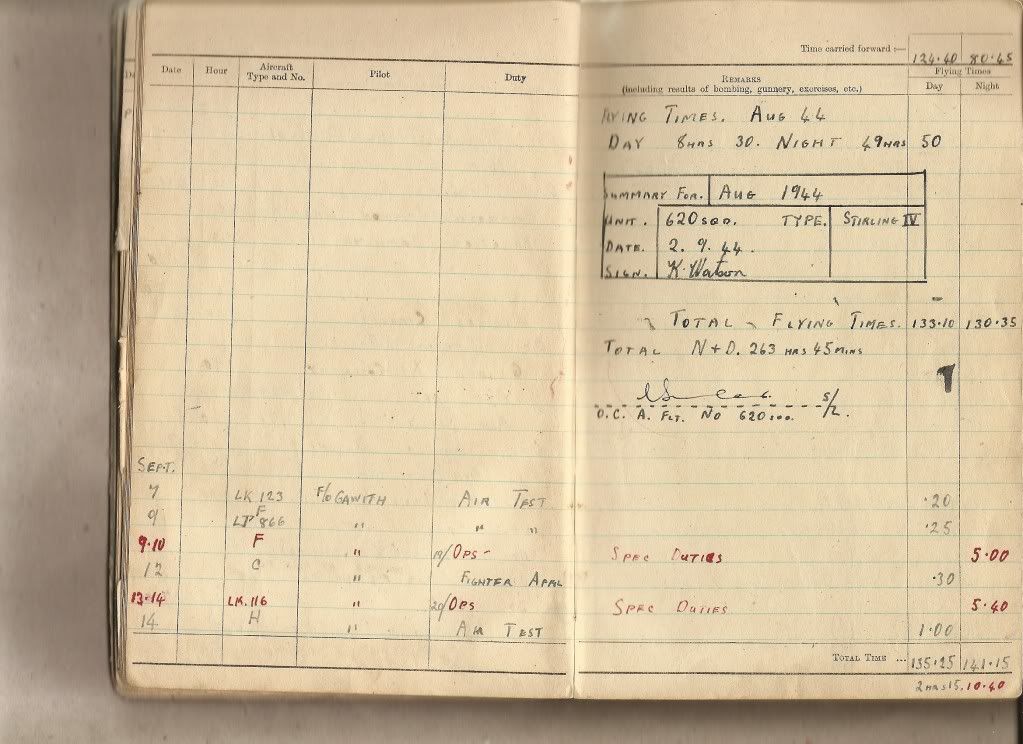 Time carried forward :— 124.40 80.45
Date Hour Aircraft Type and No. Pilot Duty
REMARKS
(including results of bombing, gunnery, exercises, etc.)
Flying Times
Day Night
FLYING TIMES. AUG 44
DAY 8HRS 30. NIGHT 49HRS 50
SUMMARY FOR. AUG 1944
UNIT. 620 SQD. TYPE. STIRLING IV
DATE. 2. 9. 44.
SIGN. K. Watson
TOTAL FLYING TIMES. 133.10 130.35
TOTAL N+D. 263 HRS 45 MINS
S/L
O.C. A. FLT. NO 620 SQD.
SEPT.
7 LK 123 F/O GAWITH AIR TEST .20
F
9 866 " " " .25
9.10 F " 19/OPS - SPEC DUTIES 5.00
12 C " FIGHTER AFFL .30
13.14 LK.116 " 20/OPS SPEC DUTIES 5.40
14 H " AIR TEST 1.00
TOTAL TIME ... 135.25 141.15
2HRS 15. 10.40